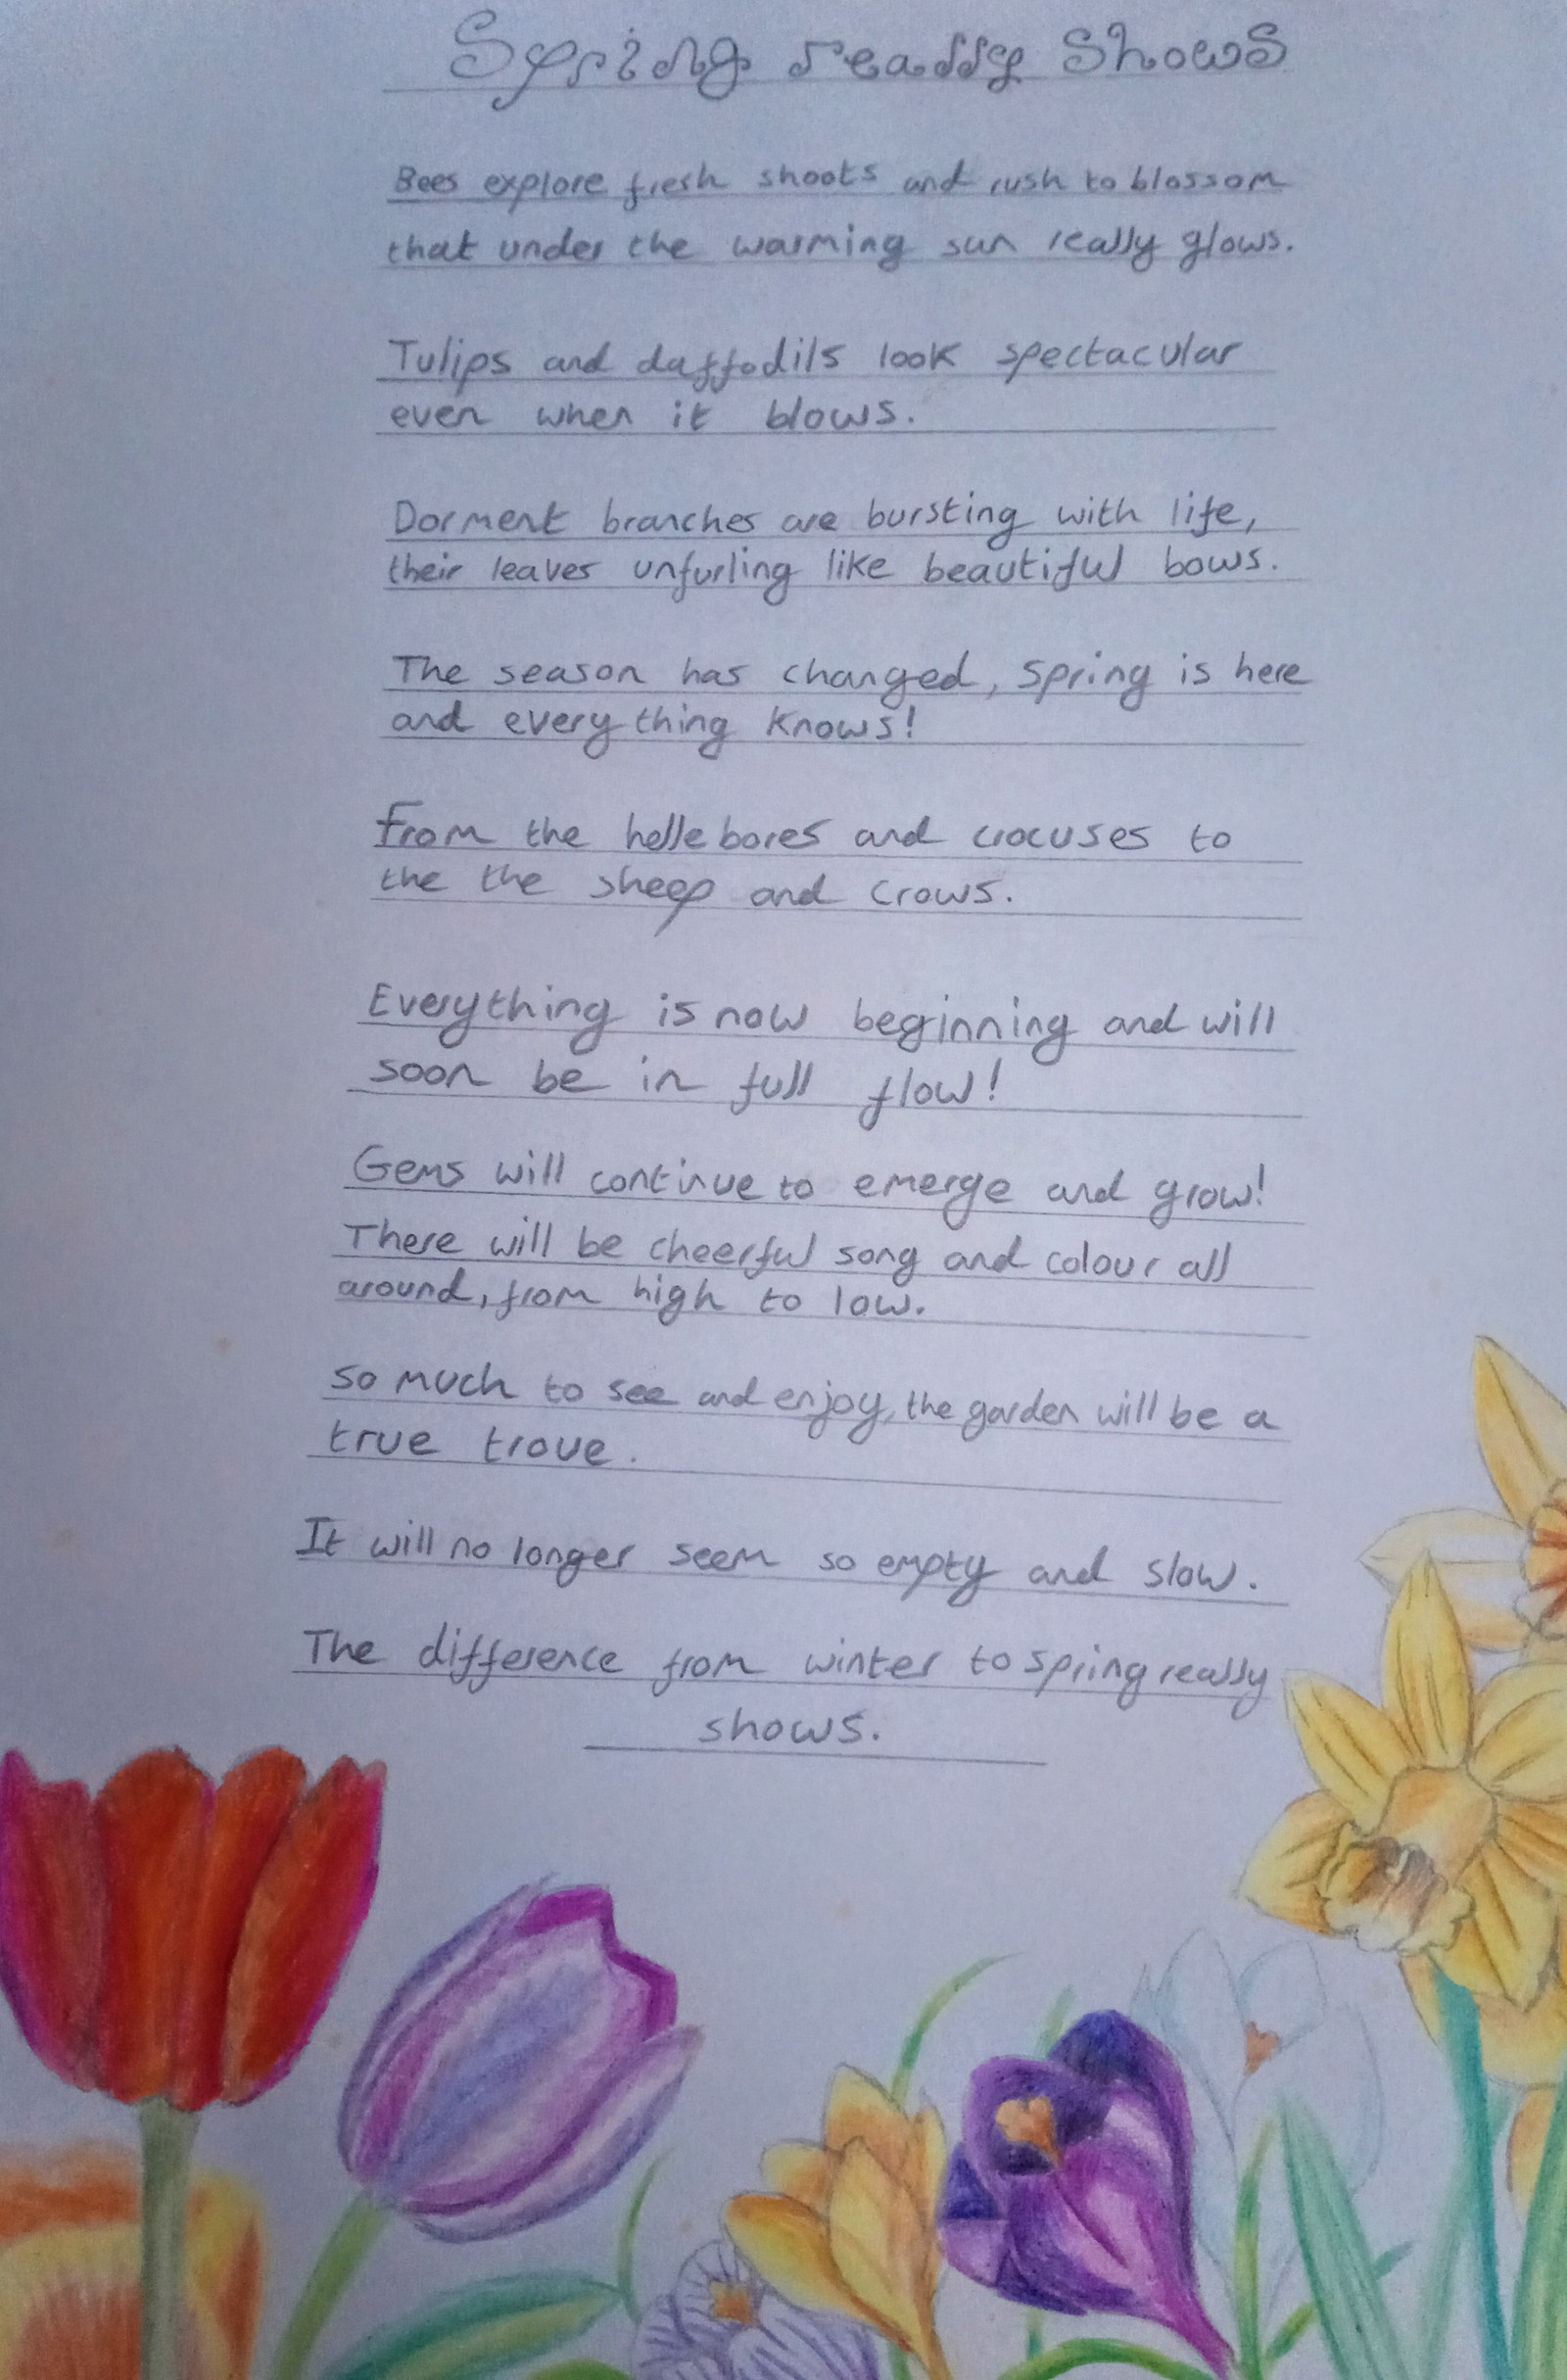 Spring really Shows
Bees explore fresh shoots and rush to blossom
that under the warming sun really glows.
Tulips and daffodils look spectacular
even when it blows.
Dorment branches are bursting with life,
their leaves unfurling like beautiful bows.
The season has changed, spring is here
and every thing knows!
From the hellebores and crocuses to
the the sheep and crows.
Everything is now beginning and will
soon be in full flow!
Gems will continue to emerge and grow!
There will be cheerful song and colour all
around, from high to low.
So much to see and enjoy, the garden will be a
true trove.
It will no longer seem so empty and slow.
The difference from winter to spring really
shows.